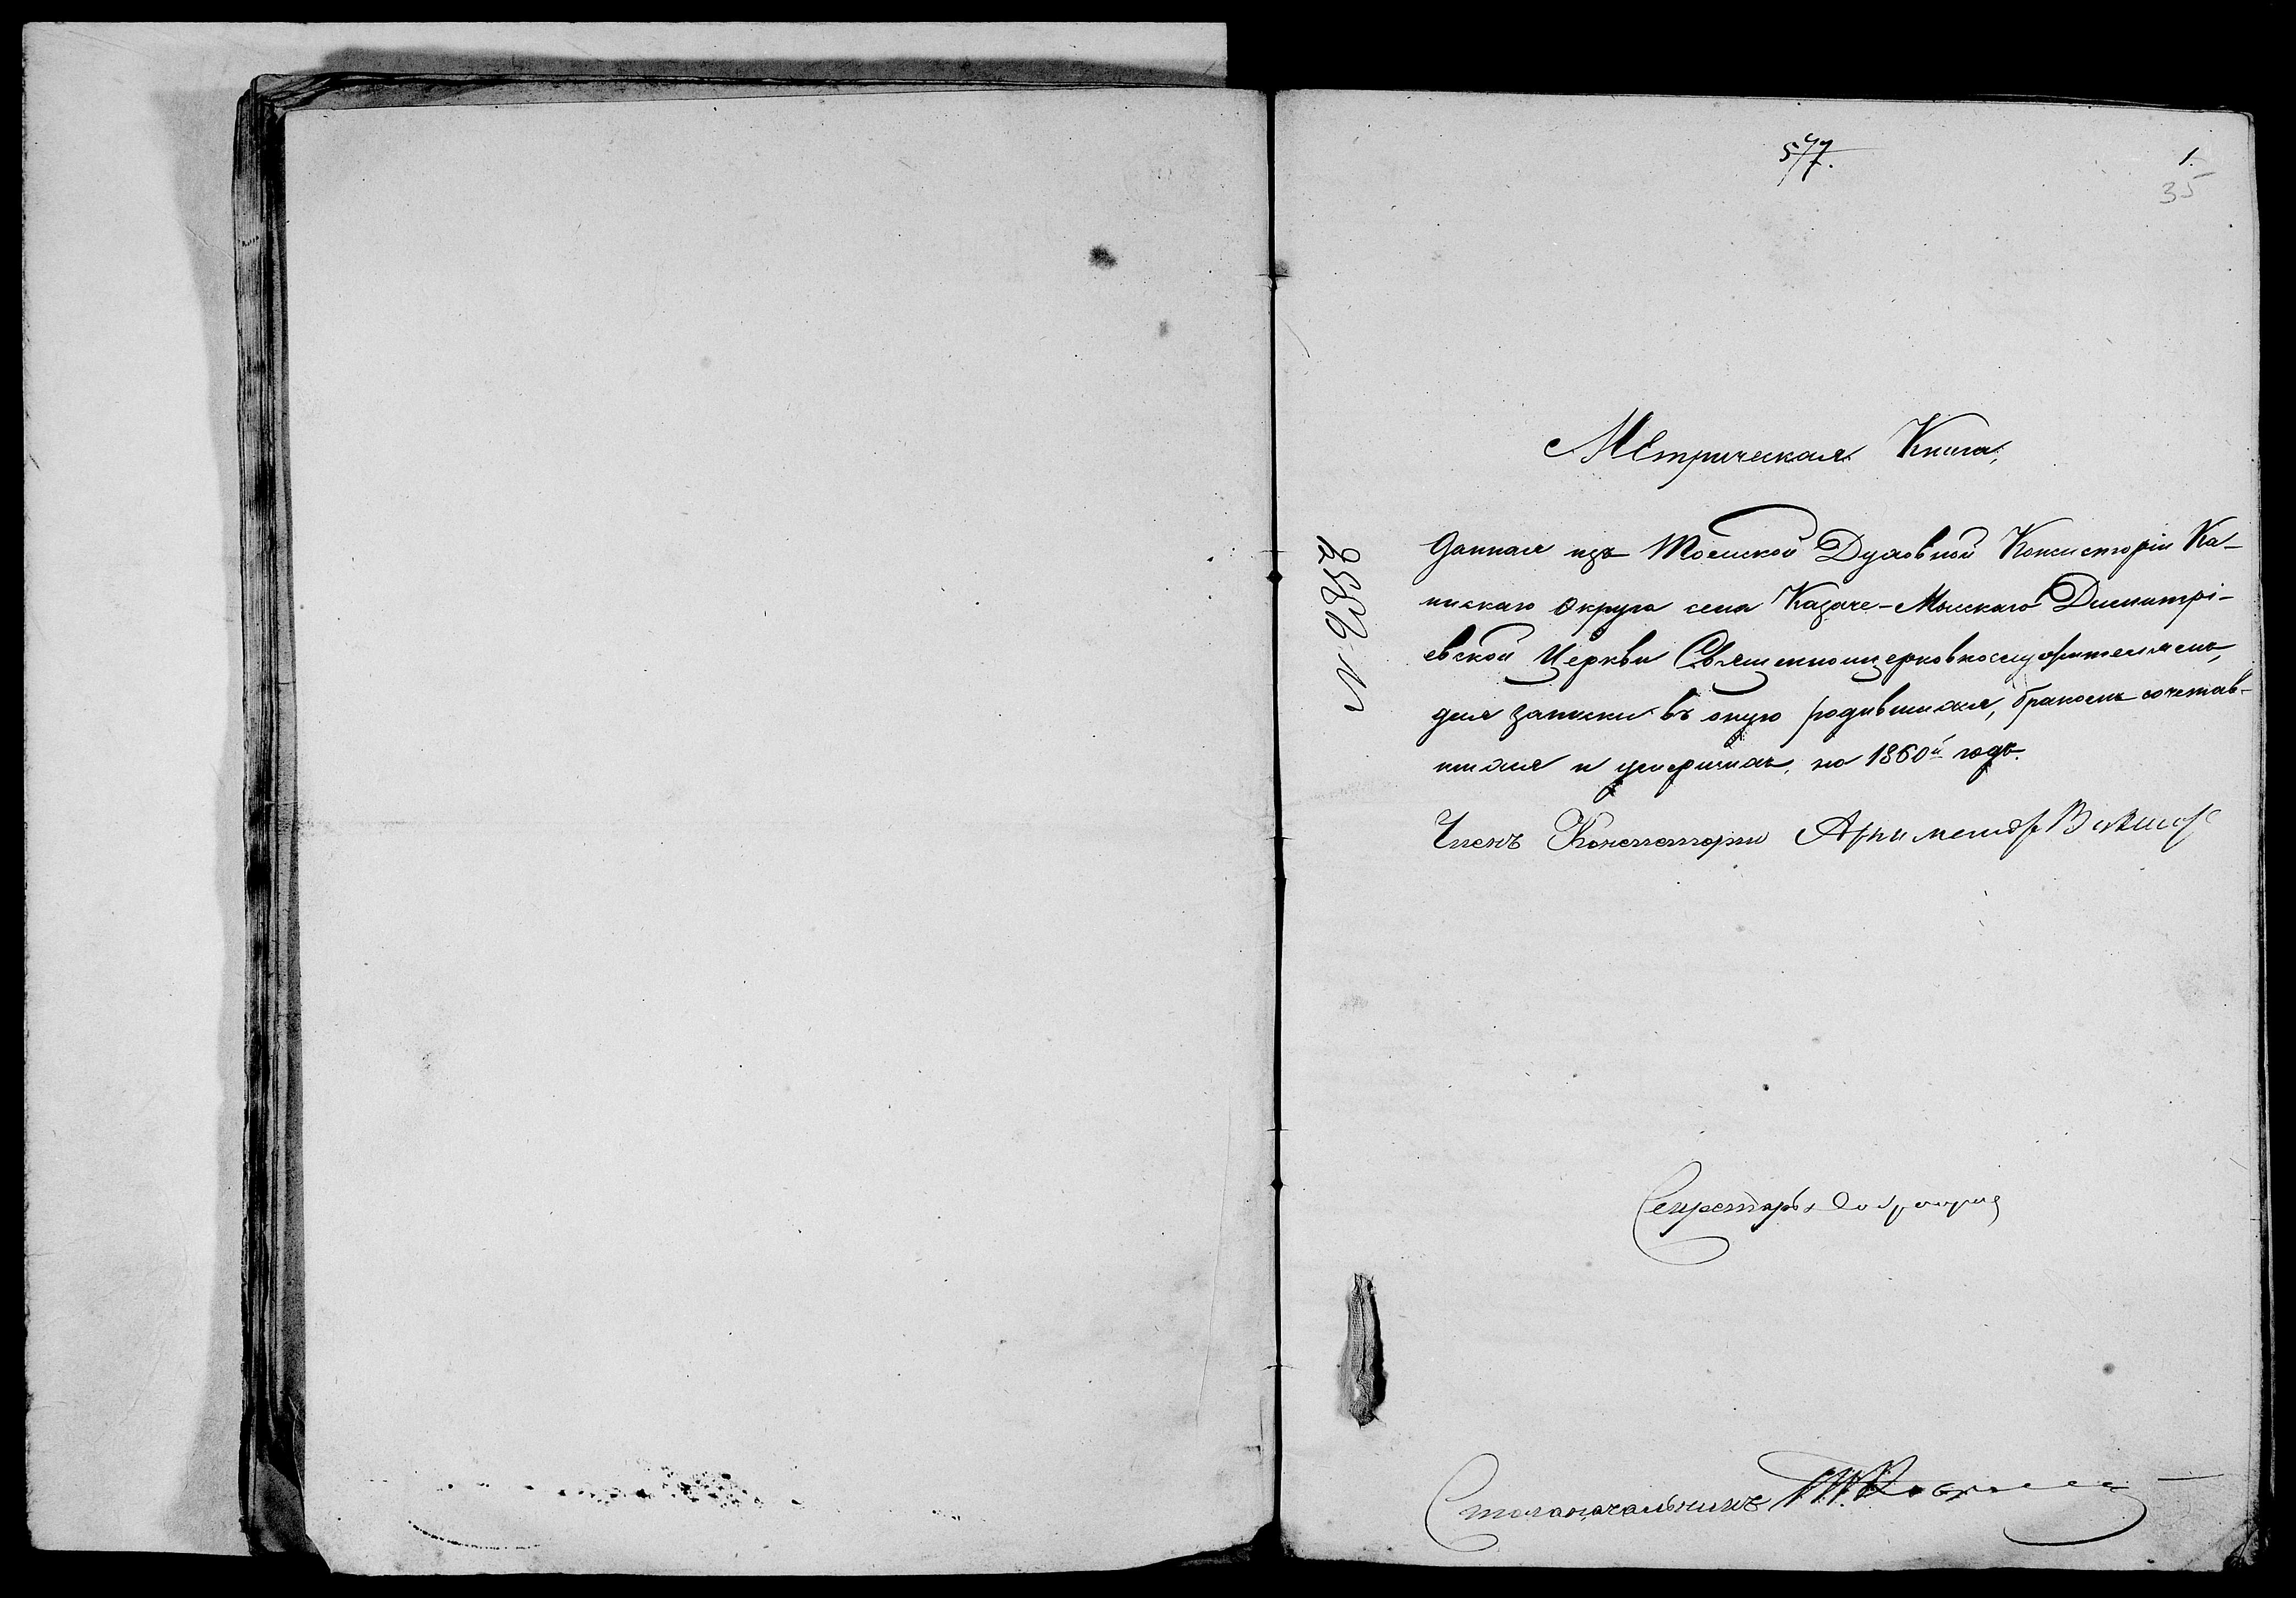 577.
1.
35
Метрическая Книга,
данная изъ Томской Духовной Консисторіи Ка-
инскаго округа села Казаче-Мысскаго Димитрі-
евской Церкви Священноцерковнослужителямъ,
для записки въ оную родившихся, бракомъ сочетав-
шихся и умершихъ, на 1860й годъ.
Членъ Консисторіи Архимандр
Секретарь
Столоначальникъ